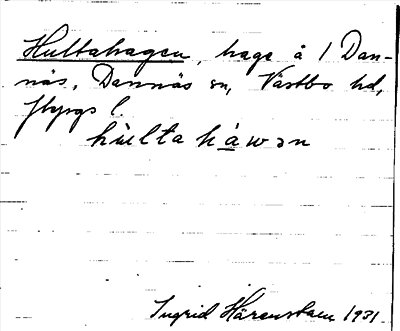 Hultahagen, hage å 1 Dan-
näs, Dannäs sn, Västbo hd,
Jkpgs l.
hùlta hàwən
Ingrid Härenstam 1931